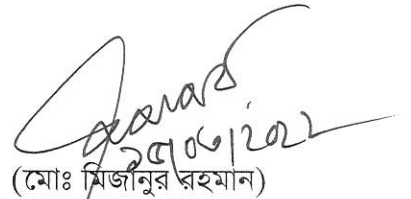 ১৫/০৬/২০২২
(মোঃ মিজানুর রহমান)